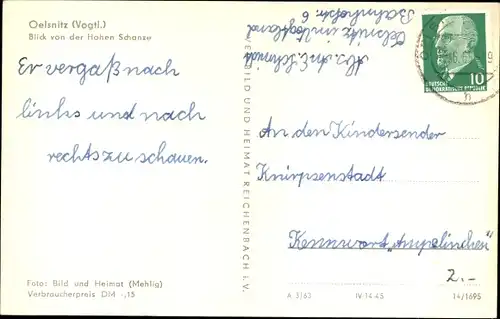 Oelsnitz (Vogtl.)
Blick von der Hohen Schanze
Er vergaß nach
links und nach
rechts zu schauen.
Foto: Bild und Heimat (Mehlig)
Verbraucherpreis DM -,15
BILD UND HEIMAT REICHENBACH i. V.
Schmidt
Oelsnitz im Vogtland
Bahnhofstr. 6
10
DEUTSCHE
DEMOKRATISCHE REPUBLIK
An den Kindersender
Knirpsenstadt
Kennwort „Ampelinchen"
2.-
A 3/63 IV-14-45 14/1695